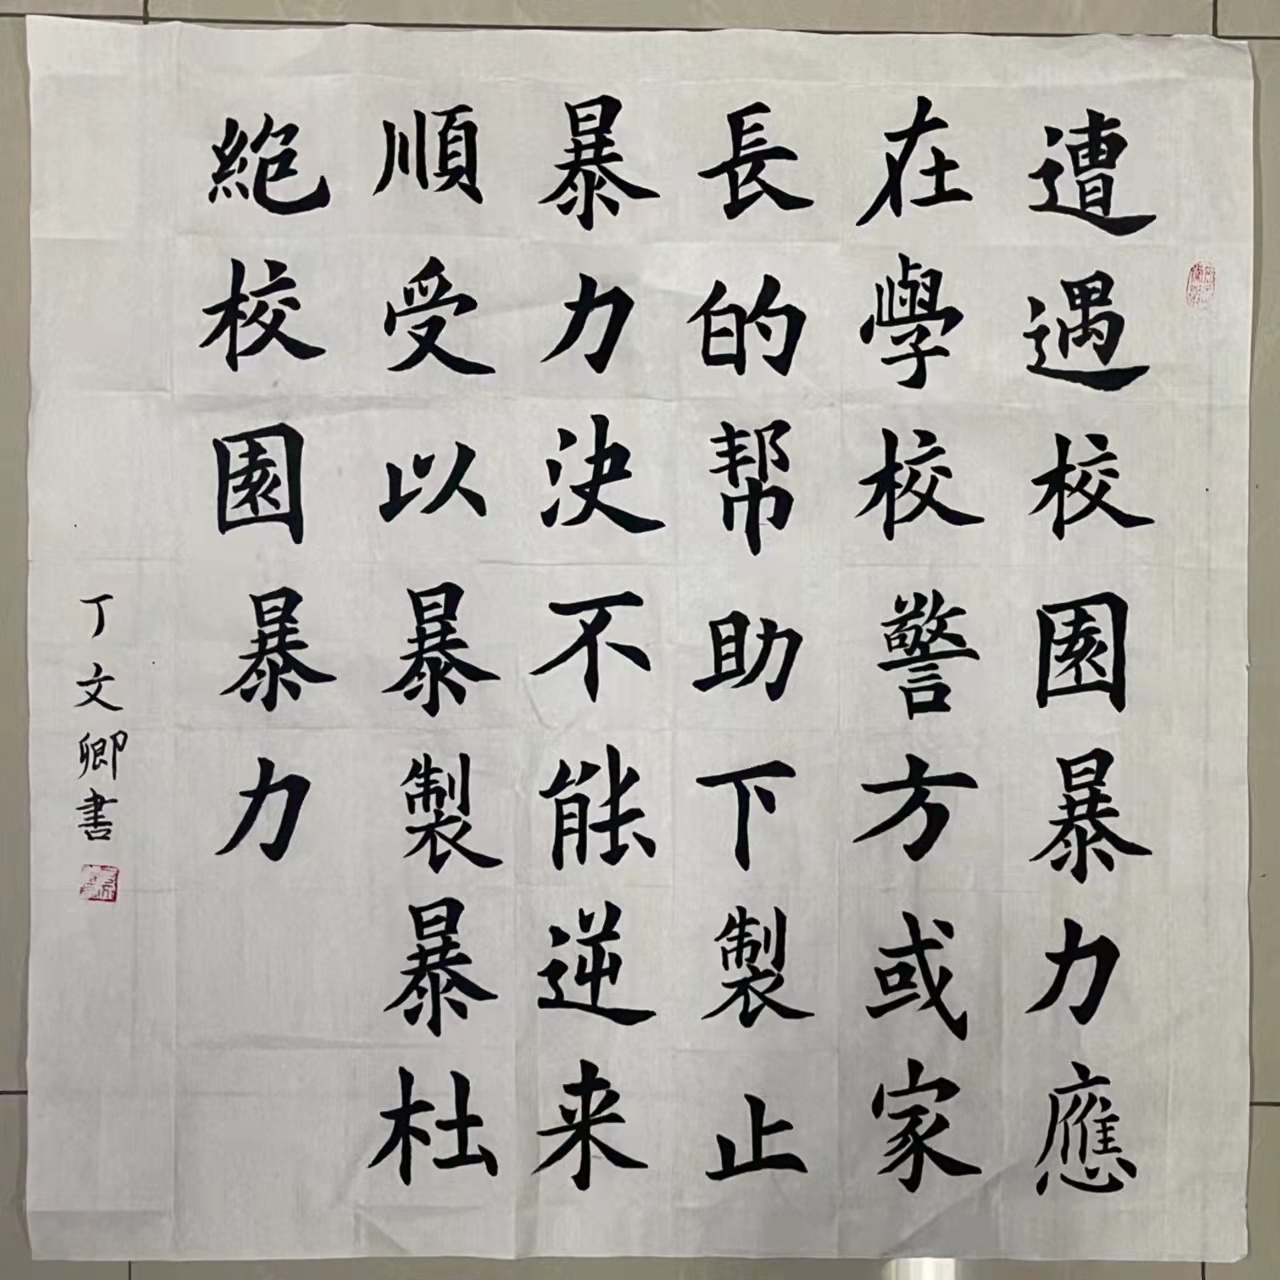 遭遇校園暴力應
在學校警方或家
長的帮助下製止
暴力決不能逆来
順受以暴製暴杜
絶校園暴力
丁文卿書